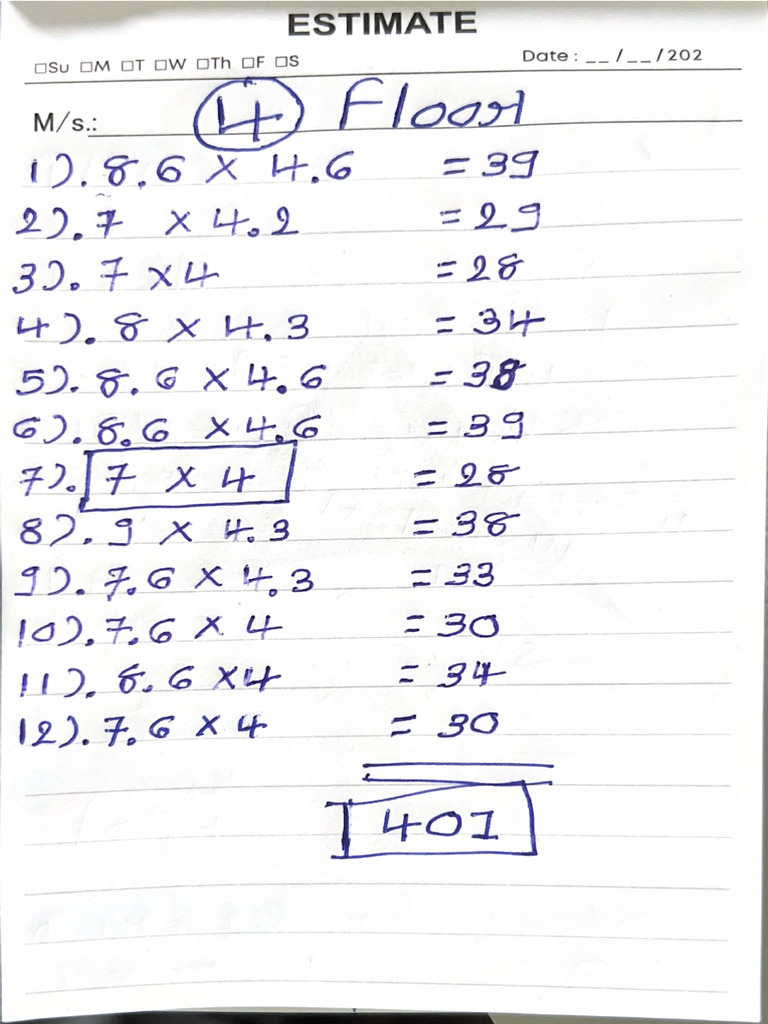 ESTIMATE
□Su □M □T □W □Th □F □S Date : __/__/202
M/s.: 4 Floor
1). 8.6 × 4.6 = 39
2). 7 × 4.2 = 29
3). 7 × 4 = 28
4). 8 × 4.3 = 34
5). 8.6 × 4.6 = 38
6). 8.6 × 4.6 = 39
7). 7 × 4 = 28
8). 9 × 4.3 = 38
9). 7.6 × 4.3 = 33
10). 7.6 × 4 = 30
11). 8.6 × 4 = 34
12). 7.6 × 4 = 30
401